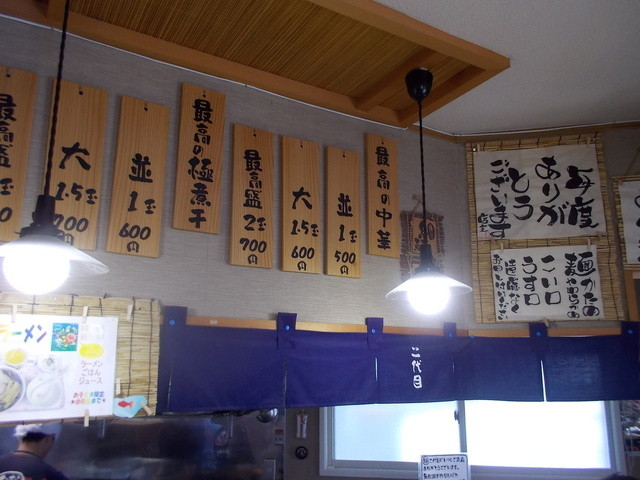 最高の中華
並 1玉 500円
大 1.5玉 600円
最高盛 2玉 700円
最高の極煮干
並 1玉 600円
大 1.5玉 700円
最高盛
毎度
ありが
とう
ございます
店主
麺かため
麺やわらかめ
こい口
うす口
遠慮なく
二代目
ラーメン
ラーメン
ごはん
ジュース